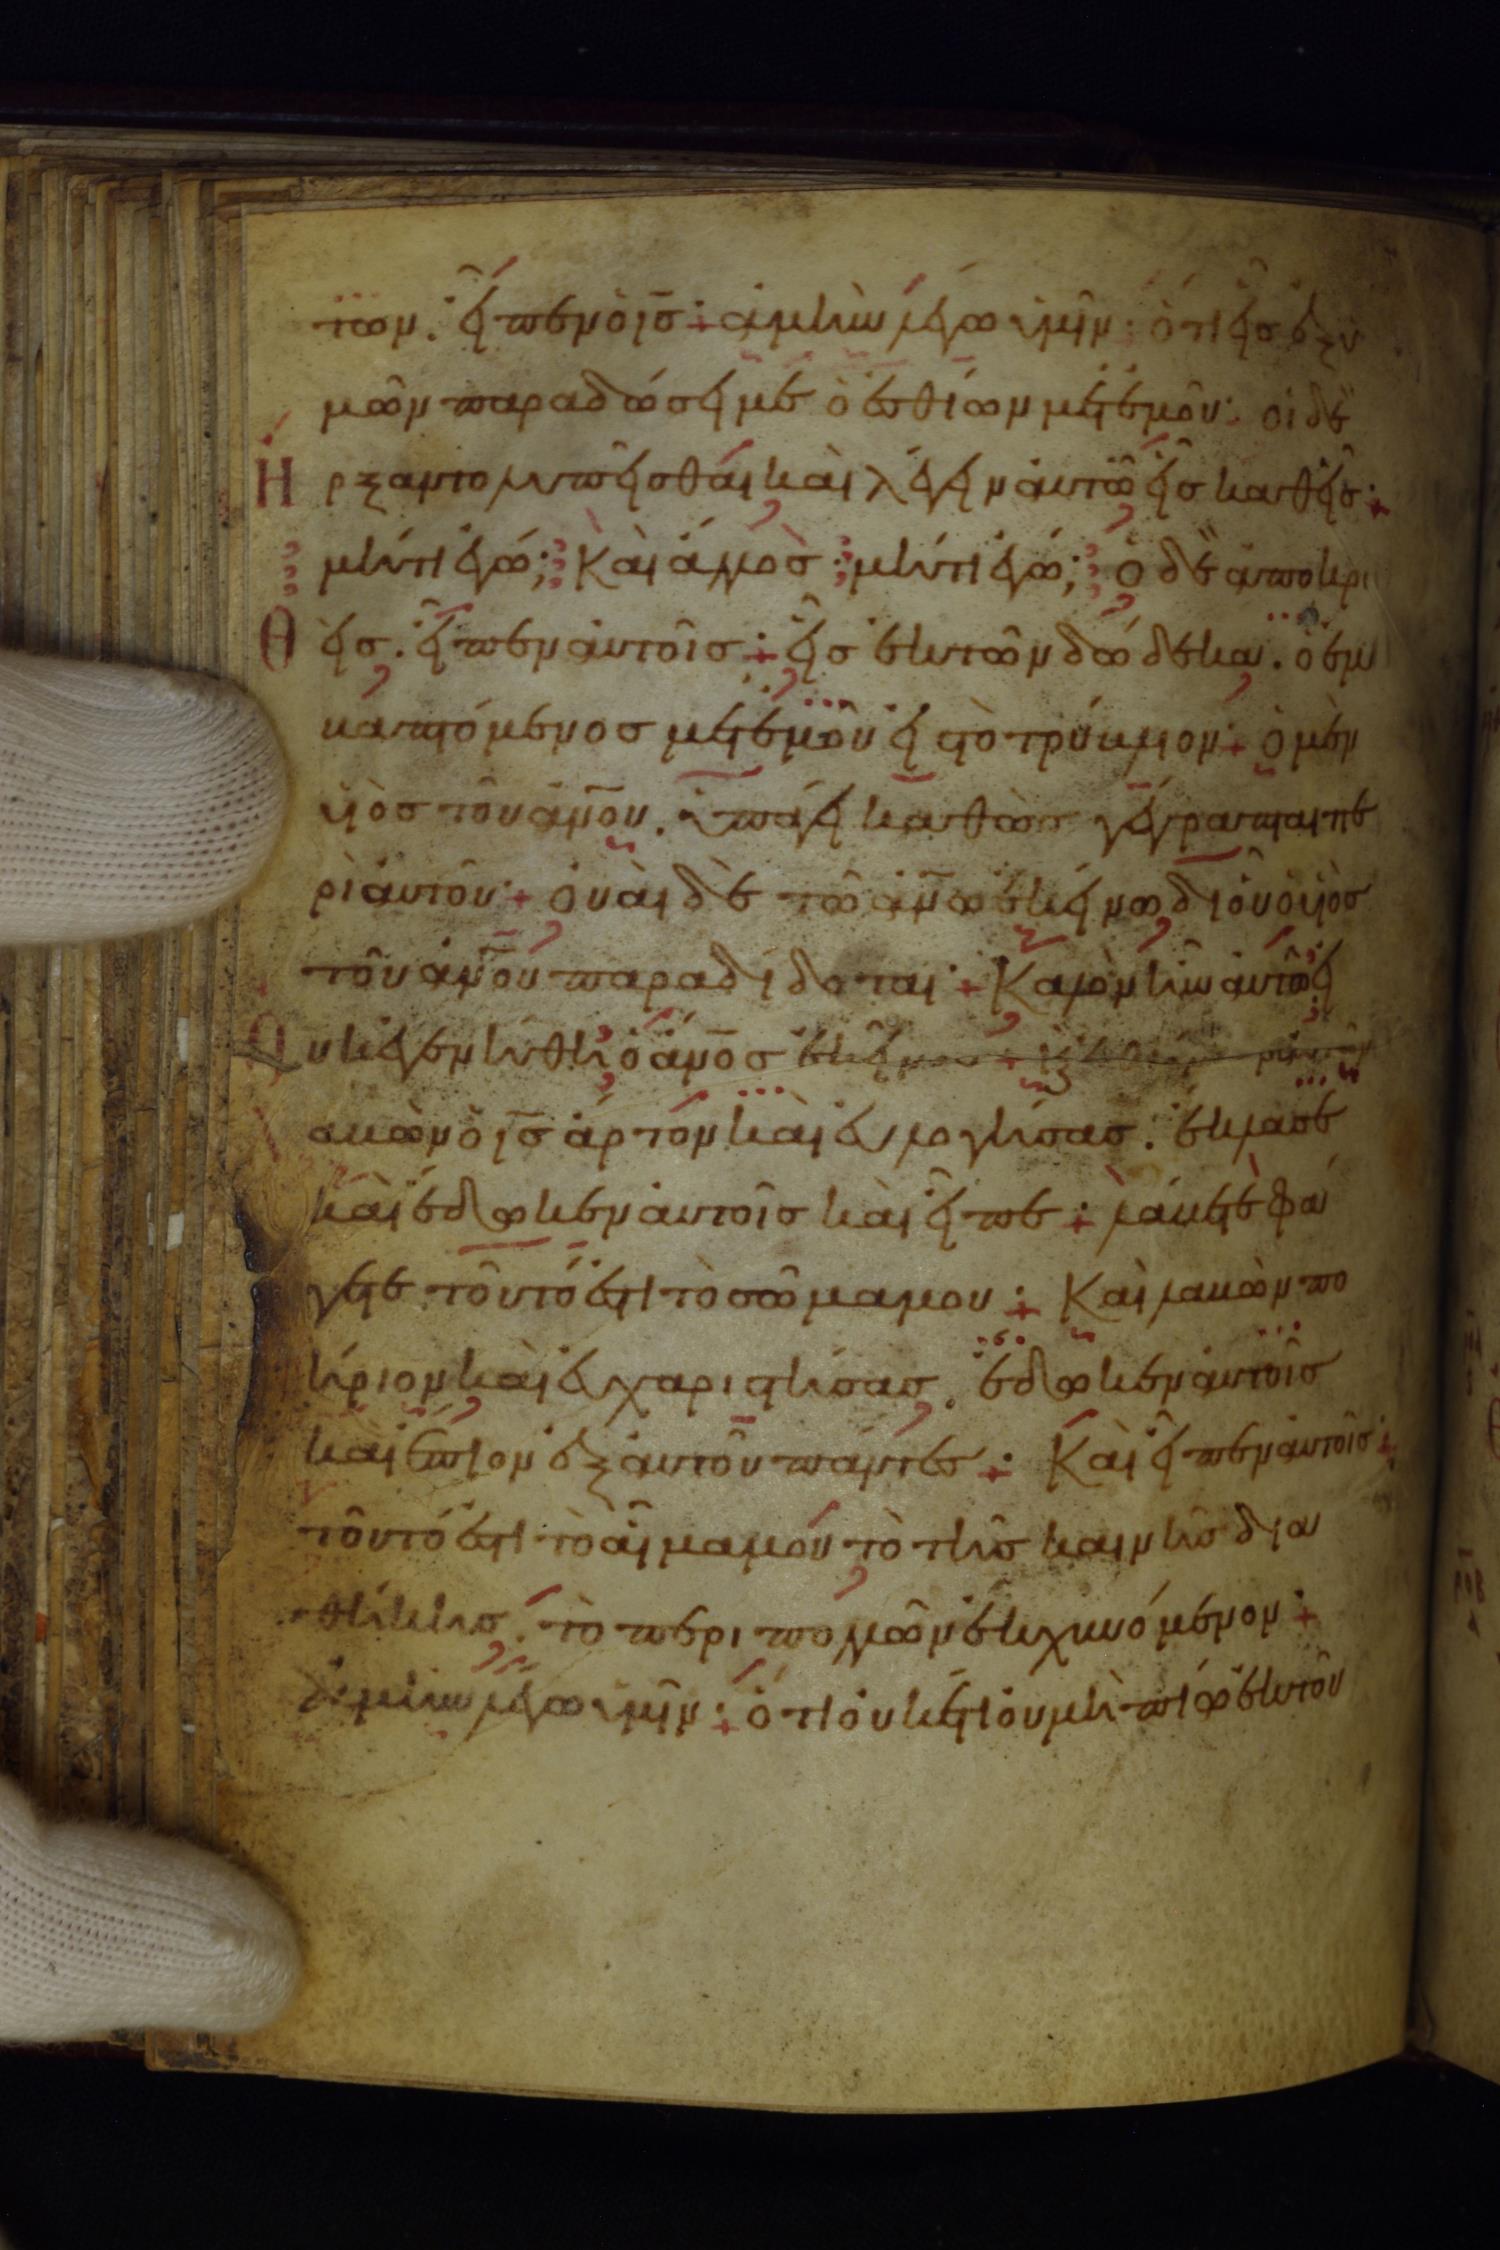 των. εἶπεν ὁ ι̅ς̅: ἀμὴν λέγω ὑμῖν: ὅτι εἷς ἐξ ὑ
μῶν παραδώσει με ὁ ἐσθίων μετ' ἐμοῦ: οἱ δὲ
Ἤρξαντο λυπεῖσθαι καὶ λέγειν αὐτῷ εἷς καθεῖς:
μήτι ἐγώ; Καὶ ἄλλος: μήτι ἐγώ; ὁ δὲ ἀποκρι
Θεὶς. εἶπεν αὐτοῖς: εἷς ἐκ τῶν δώδεκα. ὁ ἐμ
βαπτόμενος μετ' ἐμοῦ εἰς τὸ τρύβλιον: ὁ μὲν
υἱὸς τοῦ α̅ν̅ο̅υ̅. ὑπάγει καθὼς γέγραπται πε
ρὶ αὐτοῦ: οὐαὶ δὲ τῷ α̅ν̅ω̅ ἐκείνῳ δι' οὗ ὁ υἱὸς
τοῦ α̅ν̅ο̅υ̅ παραδίδοται: Καλὸν ἦν αὐτῷ εἰ
Οὐκ ἐγεννήθη ὁ α̅ν̅ο̅ς̅ ἐκεῖνος:
λαβὼν ὁ ι̅ς̅ ἄρτον καὶ εὐλογήσας. ἔκλασε
καὶ ἔδωκεν αὐτοῖς καὶ εἶπε: λάβετε φά
γετε τοῦτό ἐστι τὸ σῶμα μου: Καὶ λαβὼν πο
τήριον καὶ εὐχαριστήσας. ἔδωκεν αὐτοῖς
καὶ ἔπιον ἐξ αὐτοῦ πάντες: Καὶ εἶπεν αὐτοῖς:
τοῦτό ἐστι τὸ αἷμα μου τὸ τῆς καινῆς δια
θήκης. τὸ περι πολλῶν ἐκχυνόμενον:
ἀμὴν λέγω ὑμῖν: ὅτι οὐκέτι οὐ μὴ πίω ἐκ τοῦ